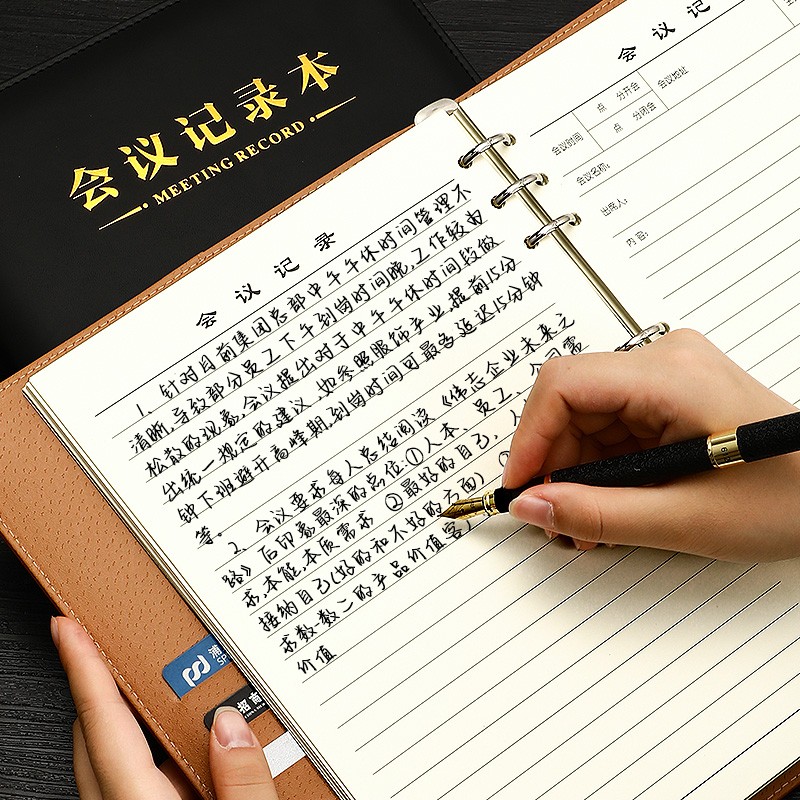 会议记录本
MEETING RECORD
会议记录
1、针对目前集团总部中午午休时间管理不
清晰,导致部分员工下午到岗时间晚,工作较为
松散的现象,会议提出对于中午午休时间段做
出统一规定的建议,如参照服饰产业,提前15分
钟下班避开高峰期,到岗时间可最多延迟15分钟
等。
2、会议要求每人总结阅读《伟志企业未来之
路》后印象最深的点位:①人本、员工、公司需
求,本能,本质需求 ②最好的自己,人
接纳自己(好的和不好的方面)
求数:数心的产品价值客户
价值
会议记
会议时间
点 分开会
点 分闭会
会议地址
会议名称:
出席人:
内容:
浦
SP
招商